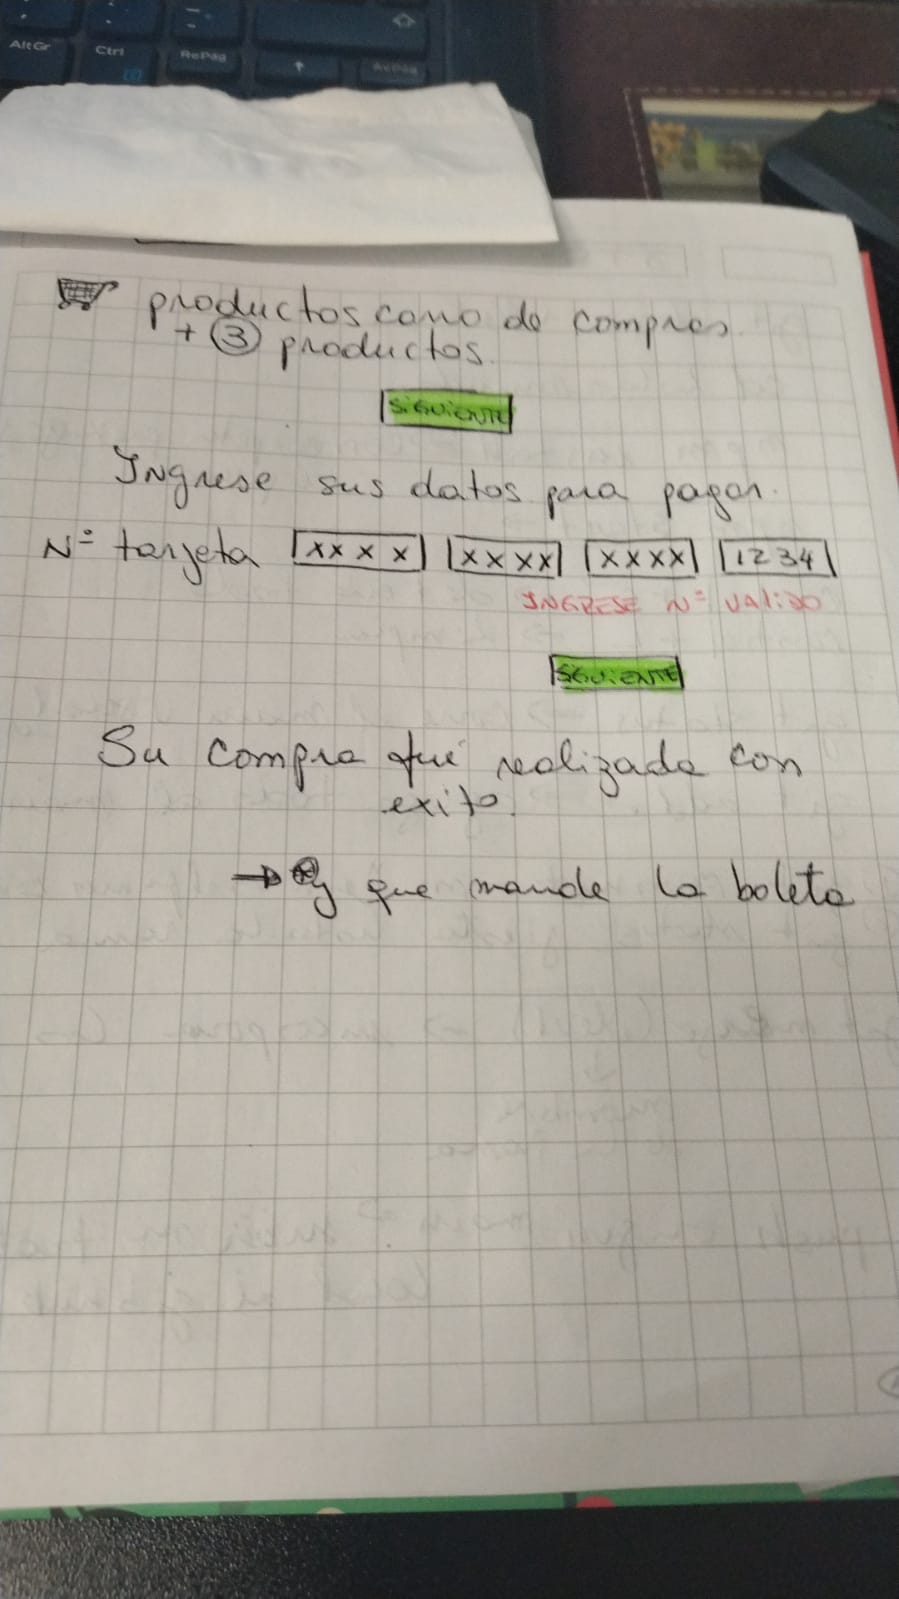 AltGr
Ctrl
RePág
AvPág
productos carro de compras.
+ ③ productos.
SiGUiENTE
Ingrese sus datos para pagar.
Nº tarjeta xxxx xxxx xxxx 1234
INGRESE Nº VALIDO
SIGUIENTE
Su compra fué realizada con
exito.
→ y que mande la boleta